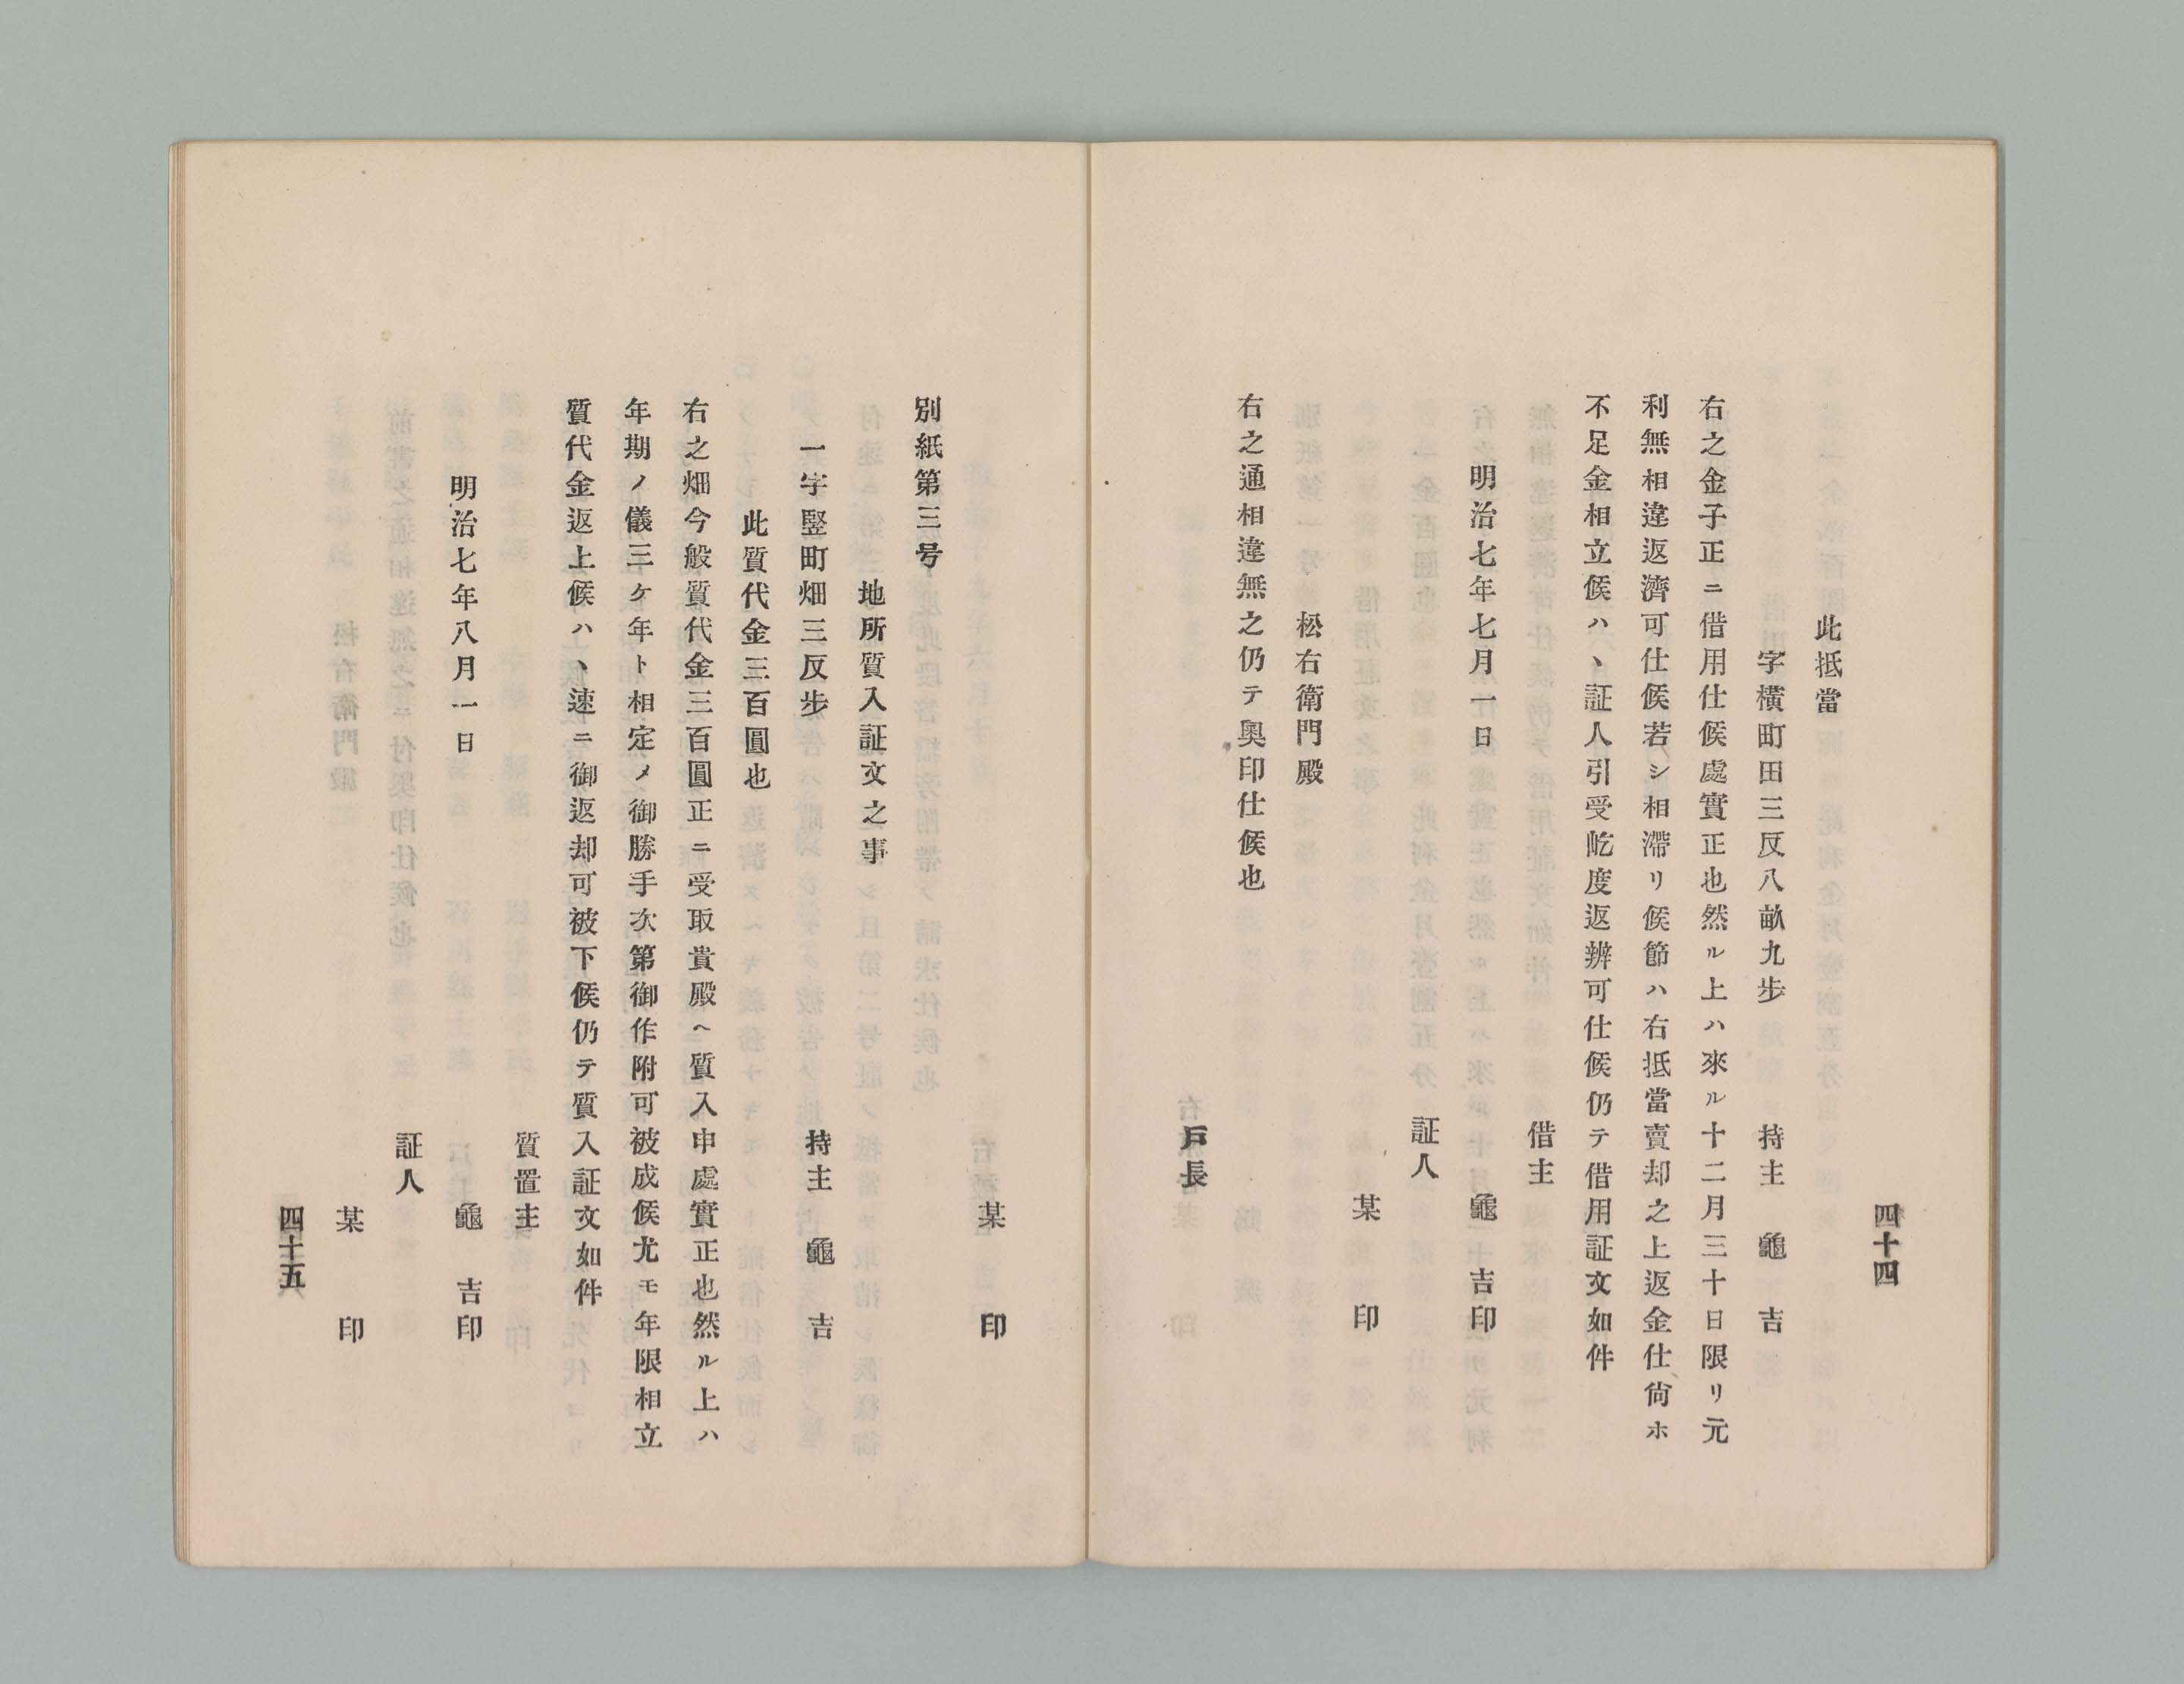 四十四
此抵當
字横町田三反八畝九歩　持主　龜吉
右之金子正ニ借用仕候處實正也然ル上ハ來ル十二月三十日限リ元
利無相違返濟可仕候若シ相滯リ候節ハ右抵當賣却之上返金仕尙ホ
不足金相立候ハヽ証人引受屹度返辨可仕候仍テ借用証文如件
借主
明治七年七月一日　龜吉印
証人
某　印
松右衛門殿
右之通相違無之仍テ奥印仕候也
戸長
某　印
別紙第三号
地所質入証文之事
一字竪町畑三反歩　持主　龜吉
此質代金三百圓也
右之畑今般質代金三百圓正ニ受取貴殿ヘ質入申處實正也然ル上ハ
年期ノ儀三ケ年ト相定メ御勝手次第御作附可被成候尤モ年限相立
質代金返上候ハヽ速ニ御返却可被下候仍テ質入証文如件
質置主
明治七年八月一日　龜吉印
証人
某　印
四十五